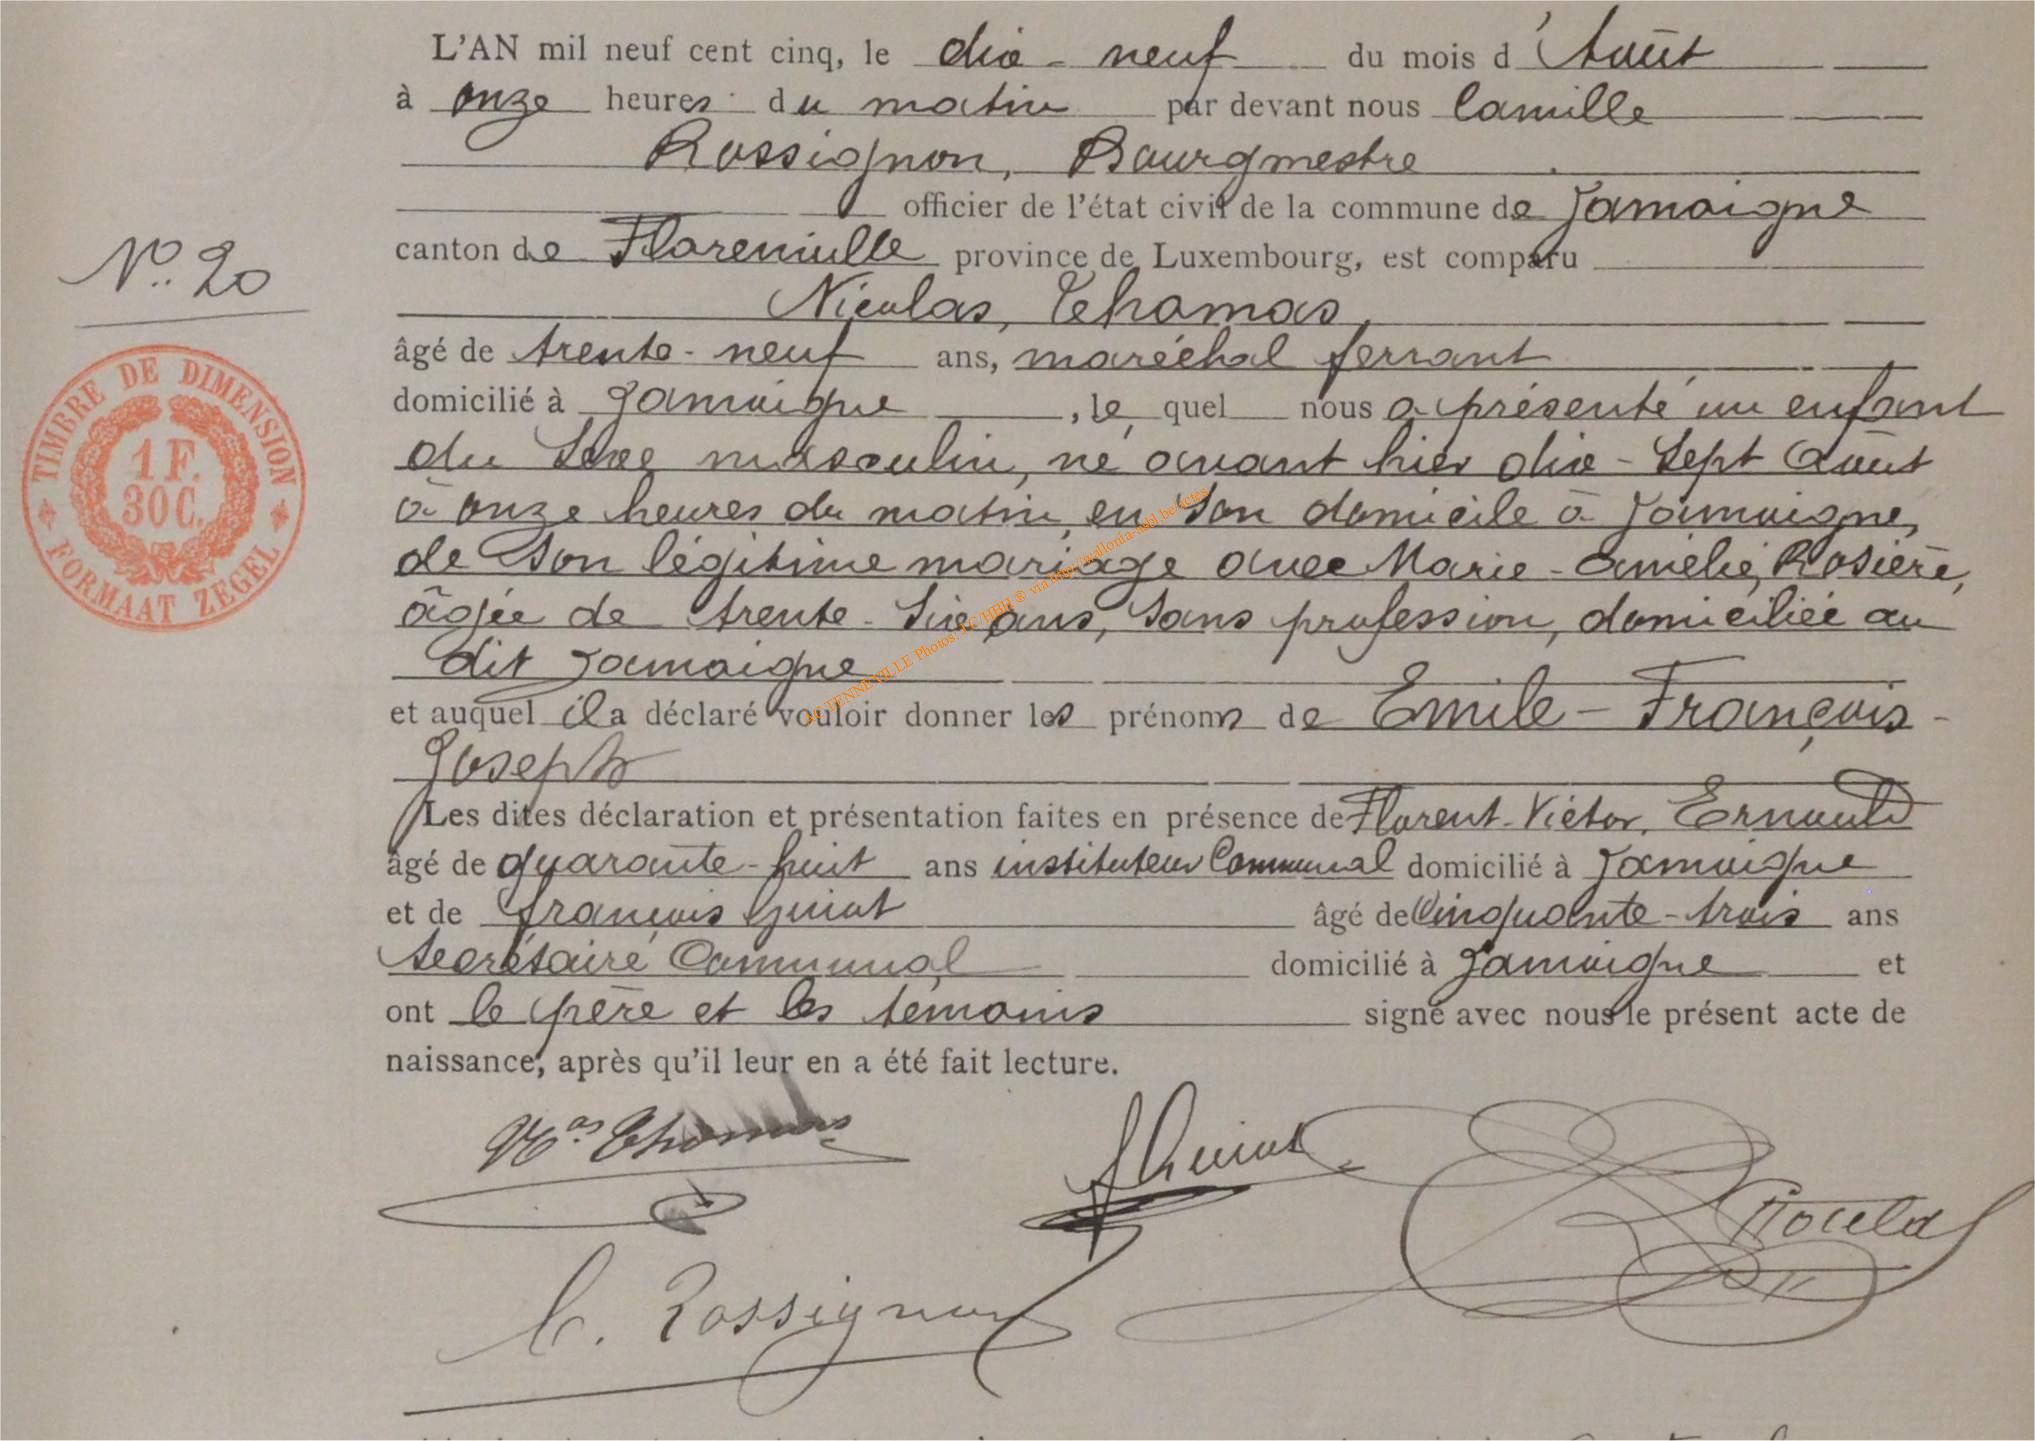 L'AN mil neuf cent cinq, le dix-neuf du mois d'Août
à onze heures du matin par devant nous Camille
Rossignon, Bourgmestre
officier de l'état civil de la commune de Jamoigne
canton de Florenville province de Luxembourg, est comparu
N° 20
Nicolas, Thomas,
âgé de trente-neuf ans, maréchal ferrant
domicilié à Jamoigne, le quel nous a présenté un enfant
TIMBRE DE DIMENSION
1 F.
30 C.
FORMAAT ZEGEL
du sexe masculin, né avant hier dix-sept Août
à onze heures du matin, en son domicile à Jamoigne,
de son légitime mariage avec Marie-Amélie, Rosière,
âgée de trente-six ans, sans profession, domiciliée au
dit Jamoigne
et auquel il a déclaré vouloir donner les prénoms de Emile-François-
Joseph
Les dites déclaration et présentation faites en présence de Florent-Victor,
âgé de quarante-huit ans instituteur Communal domicilié à Jamoigne
et de françois Guiot âgé de Cinquante-trois ans
Secrétaire Communal domicilié à Jamoigne et
ont le père et les témoins signé avec nous le présent acte de
naissance, après qu'il leur en a été fait lecture.
Nas Thomas
f Guiot
C. Rossignon